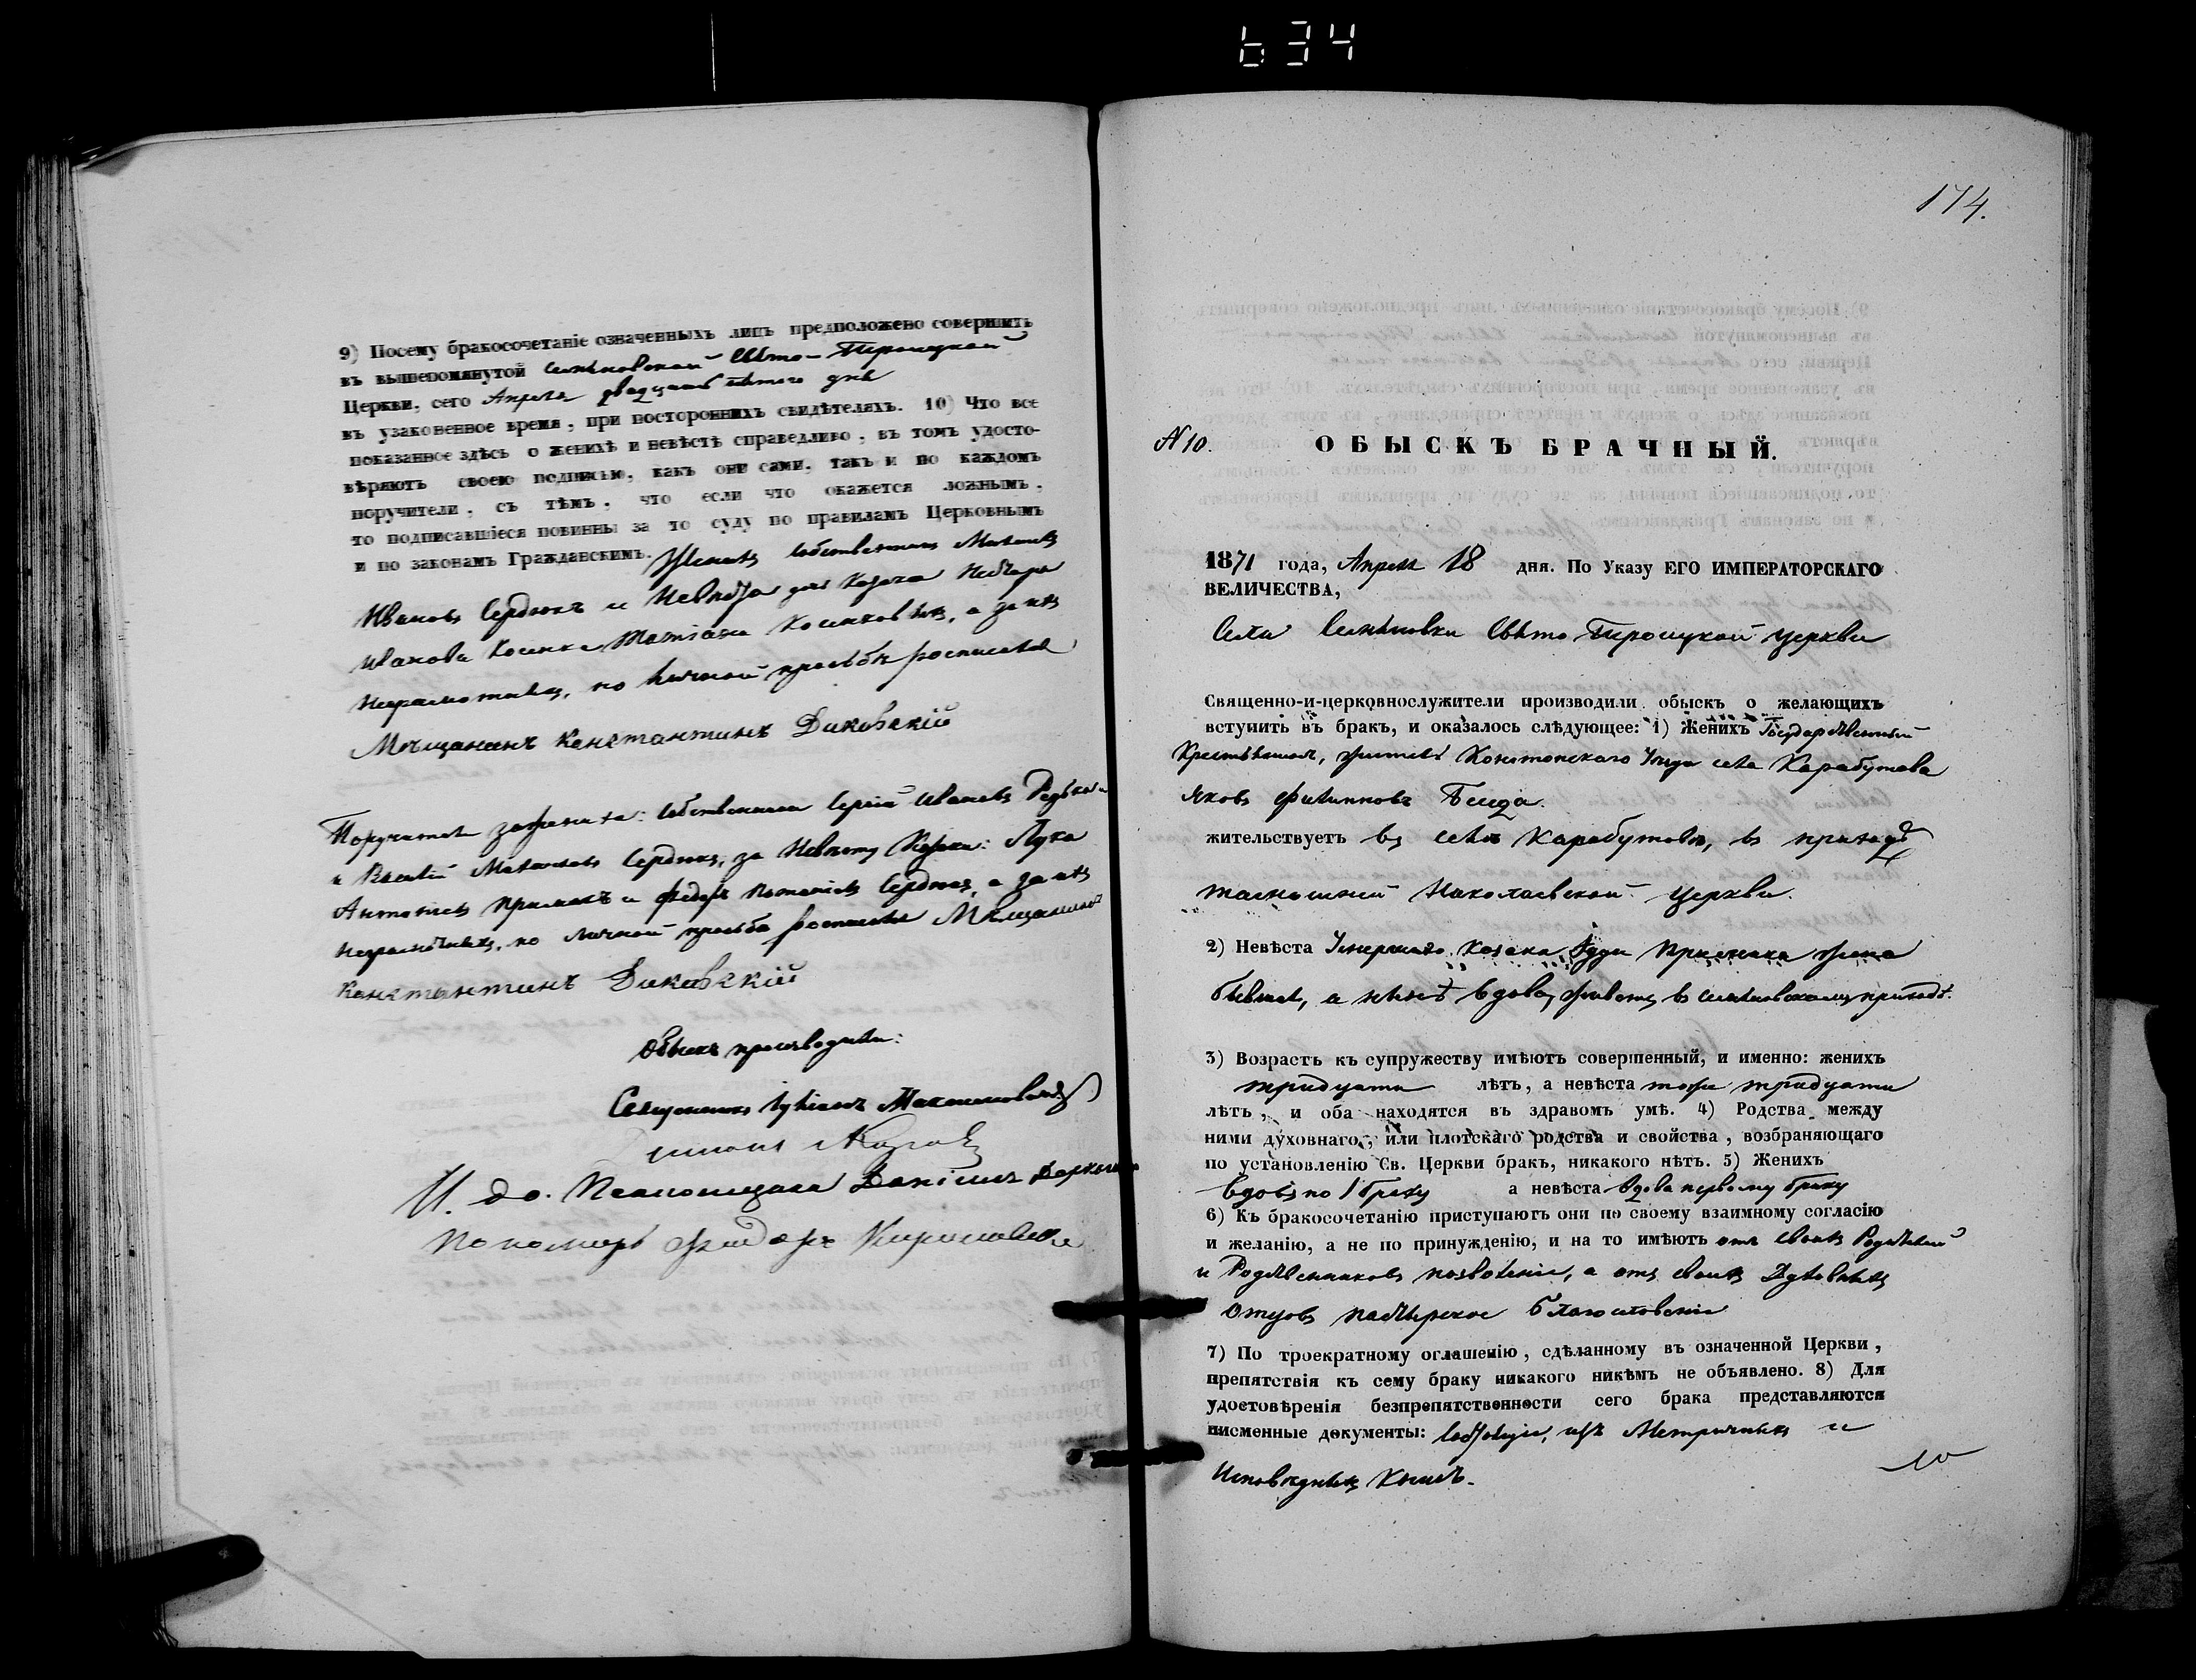 634
9) Посему бракосочетаніе означенныхъ лицъ предположено совершить
въ вышепомянутой Семіоновской Свято-Троицкой
Церкви, сего Апреля двадцать пятого дня
въ узаконенное время, при постороннихъ свидѣтеляхъ. 10) Что все
показанное здѣсь о женихѣ и невѣстѣ справедливо, въ томъ удосто-
вѣряютъ своею подписью, какъ они сами, такъ и по каждомъ
поручители, съ тѣмъ, что если что окажется ложнымъ,
то подписавшіеся повинны за то суду по правиламъ Церковнымъ
и по законамъ Гражданскимъ. Женихъ собственникъ
Ивановъ Сердюкъ и Невѣста дочь Козака
Иванова Косенка Татіана, а за нихъ
неграмотныхъ, по личной просьбѣ росписался
Мещанинъ Константинъ Диковскій
Поручители за жениха: собственники Сергій Ивановъ Редька
и Василій Сердюкъ, за Невѣсту Козаки: Лука
Антоновъ и Федоръ Сердюкъ, а за нихъ
неграмотныхъ, по личной просьбѣ росписался Мещанинъ
Константинъ Диковскій
Обыскъ производили:
Священникъ Максимовичъ
И. до. Псаломщика Даніилъ
Пономарь Федоръ
174.
N 10.
ОБЫСКЪ БРАЧНЫЙ.
1871 года, Апреля 18 дня. По Указу ЕГО ИМПЕРАТОРСКАГО
ВЕЛИЧЕСТВА,
Села Свято Троицкой церкви
Священно-и-церковнослужители производили обыскъ о желающихъ
вступить въ бракъ, и оказалось слѣдующее: 1) Женихъ Государственный
Крестьянинъ, житель Конотопского Уезда села Карабутова
Яковъ Филипповъ Бсида.
жительствуетъ въ селѣ Карабутовѣ, въ приходѣ
тамошней Николаевской церкви.
2) Невѣста Умершего Козака жена
бывшая, а нынѣ вдова, живетъ въ приходѣ.
3) Возрастъ къ супружеству имѣютъ совершенный, и именно: женихъ
тридцати лѣтъ, а невѣста тоже тридцати
лѣтъ, и оба находятся въ здравомъ умѣ. 4) Родства между
ними духовнаго, или плотскаго родства и свойства, возбраняющаго
по установленію Св. Церкви бракъ, никакого нѣтъ. 5) Женихъ
вдовъ по 1 браку а невѣста вдова первому браку
6) Къ бракосочетанію приступаютъ они по своему взаимному согласію
и желанію, а не по принужденію, и на то имѣютъ отъ своихъ Родителей
и Родственниковъ позволеніе, а отъ своихъ Духовныхъ
Отцовъ пастырское благословеніе
7) По троекратному оглашенію, сдѣланному въ означенной Церкви,
препятствія къ сему браку никакого никѣмъ не объявлено. 8) Для
удостовѣренія безпрепятственности сего брака представляются
письменные документы: изъ Метричныхъ и
Исповѣдныхъ Книгъ.